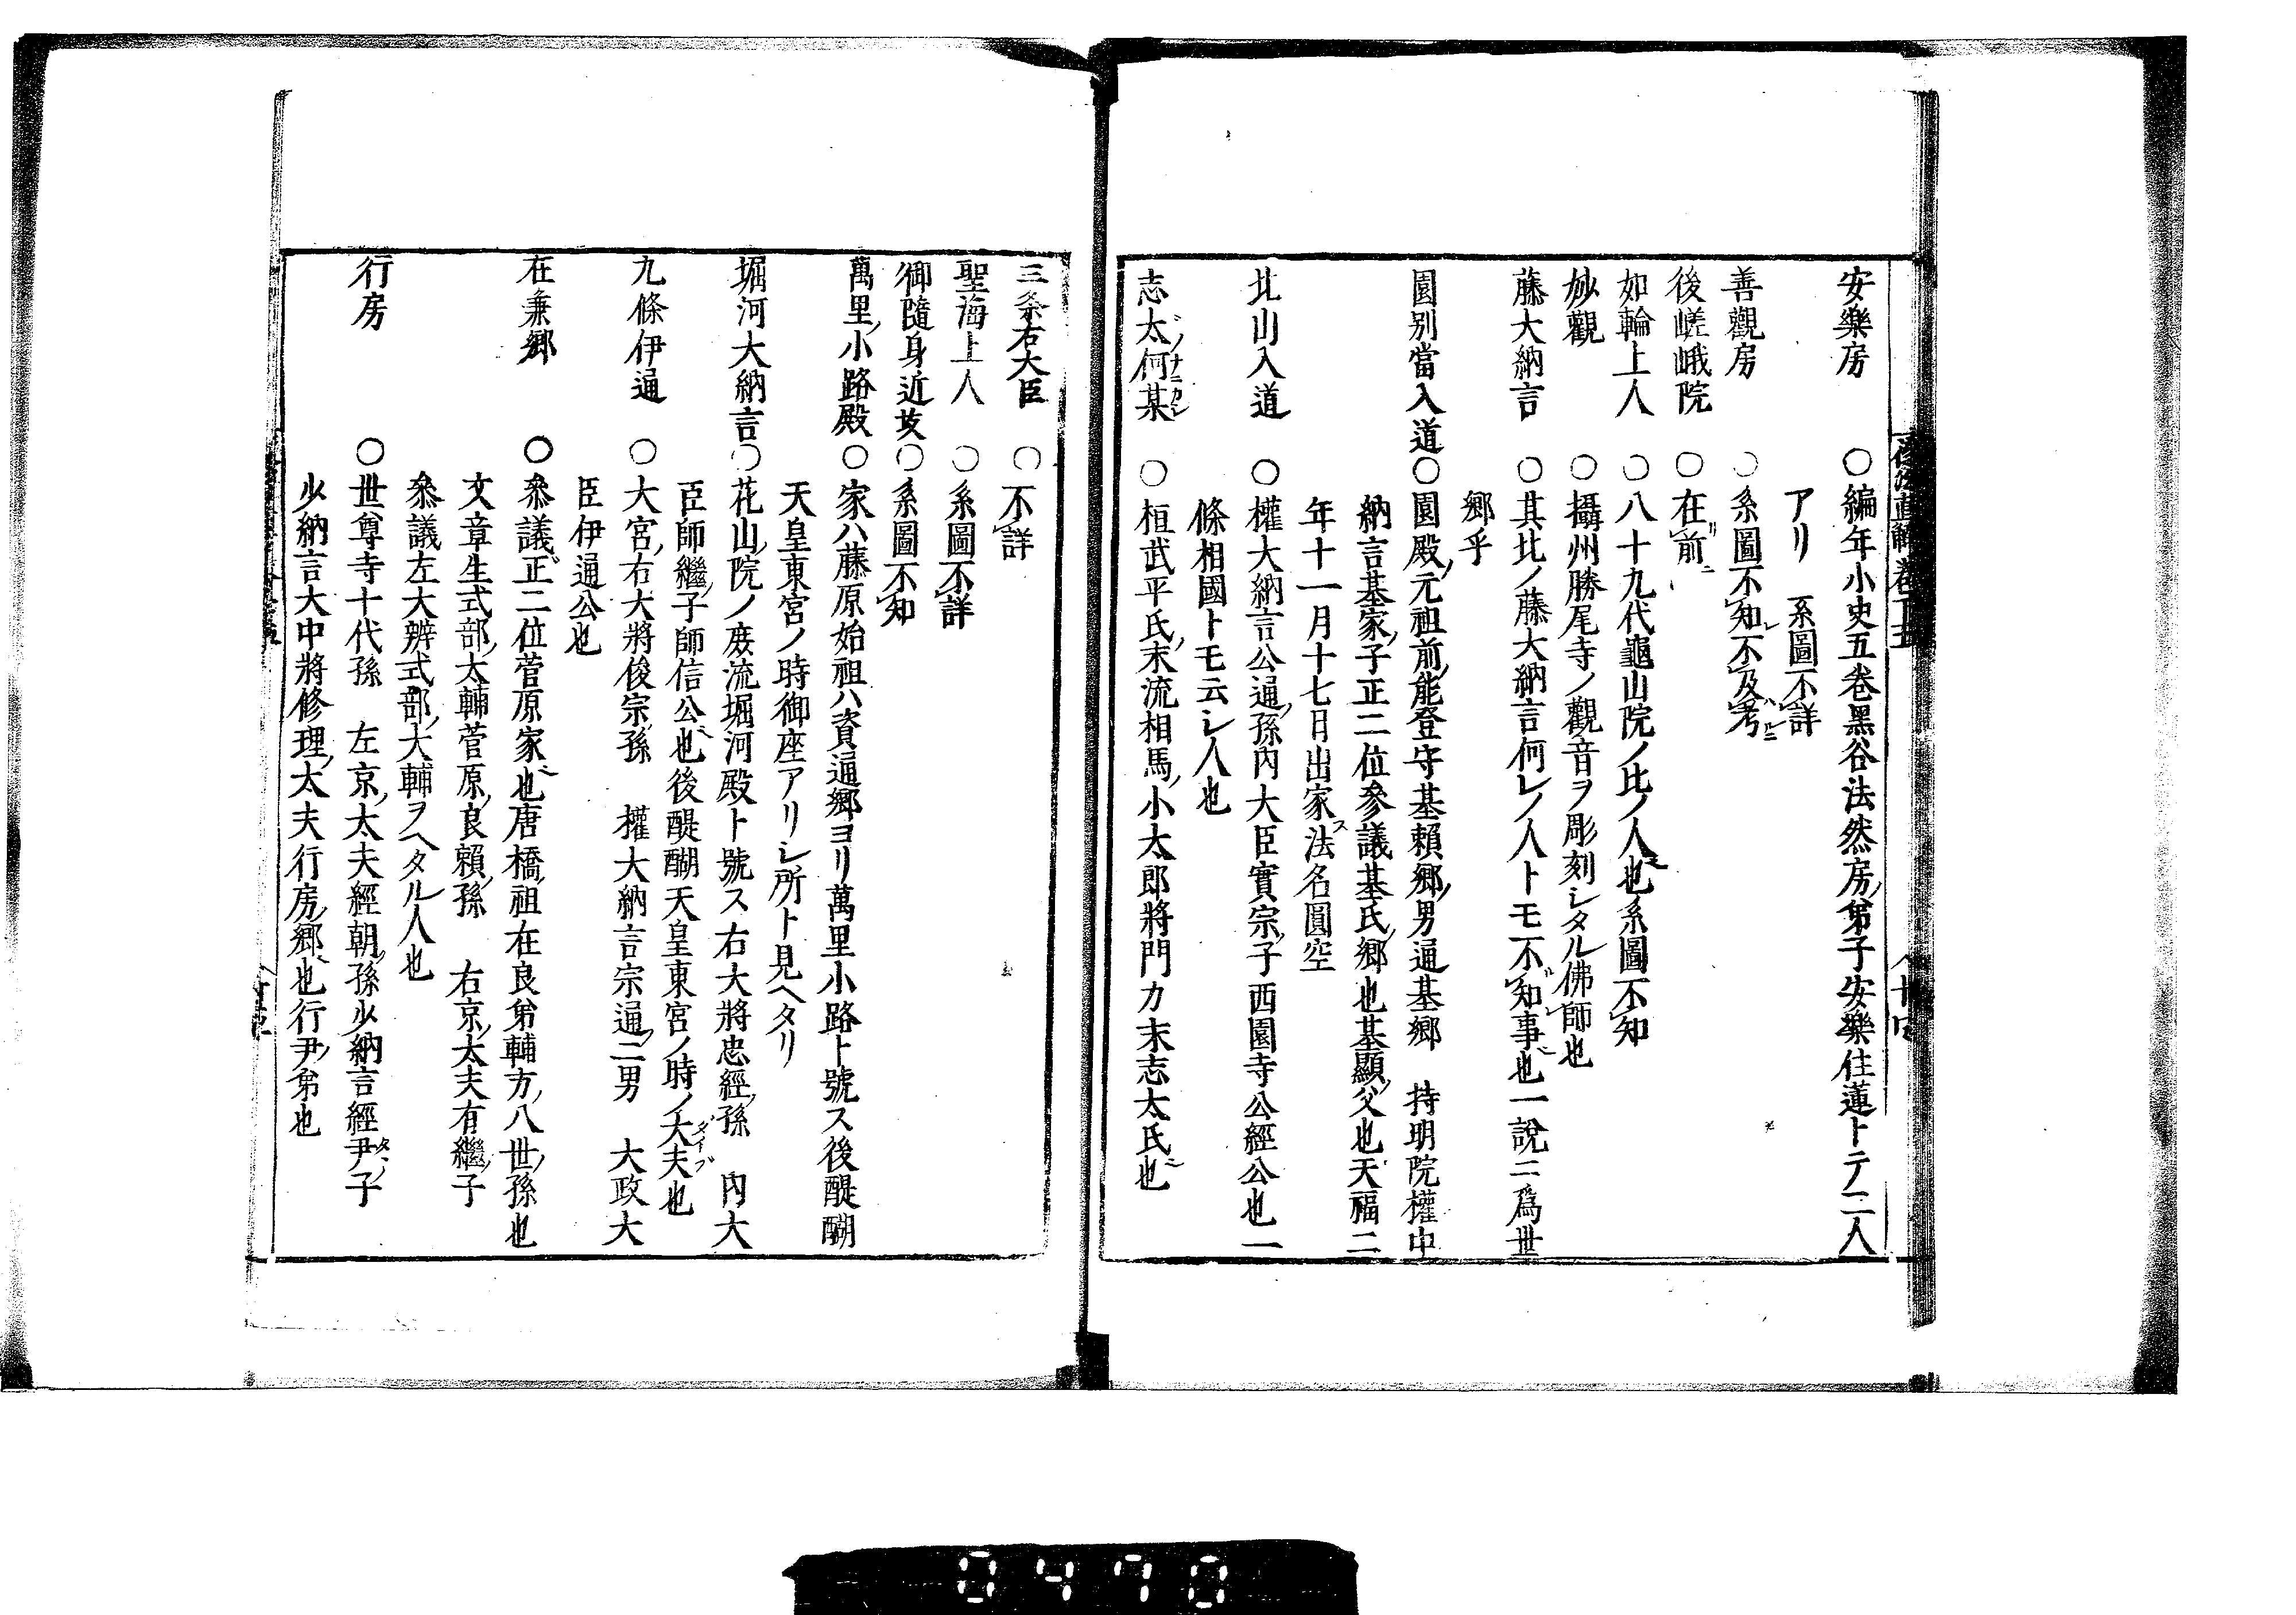 安樂房 ○編年小史五巻黒谷法然房ノ弟子安樂住蓮トテ二人
アリ 系圖不詳
善觀房 ○系圖不知レ不及ハレ考ニ
後嵯峨院 ○在リ前ニ
如輪上人 ○八十九代龜山院ノ比ノ人也系圖不知
妙觀 ○攝州勝尾寺ノ觀音ヲ彫刻シタル佛師也
藤大納言 ○其比ノ藤大納言何レノ人トモ不ル知レ事也一説ニ爲世
郷乎
園別當入道 ○園殿ノ元祖前ノ能登守基頼郷ノ男通基郷 持明院權中
納言基家ノ子正二位參議基氏ノ郷也基顯ノ父也天福二
年十一月十七日出家ス法名圓空
北山入道 ○權大納言公通ノ孫内大臣實宗ノ子西園寺公經公也一
條相國トモ云シ人也
志太ノ何某ナニカシ ○桓武平氏ノ末流相馬ノ小太郎將門カ末志太氏也
三条右大臣 ○不詳
聖海上人 ○系圖不詳
御隨身近友 ○系圖不知
萬里ノ小路殿 ○家ハ藤原始祖ハ資通郷ヨリ萬里小路ト號ス後醍醐
天皇東宮ノ時御座アリシ所ト見ヘタリ
堀河大納言 ○花山ノ院ノ庶流堀河殿ト號ス右大將忠經ノ孫 内大
臣師繼ノ子師信公也後醍醐天皇東宮ノ時ノ大夫ダイブ也
九條伊通 ○大宮ノ右大將俊宗ノ孫 權大納言宗通ノ二男 大政大
臣伊通公也
在兼郷 ○參議正二位菅原家也唐橋ノ祖在良弟輔方ノ八世ノ孫也
文章生式部ノ太輔菅原ノ良頼ノ孫 右京ノ太夫有繼ノ子
參議左大辨式部ノ大輔ヲヘタル人也
行房 ○世尊寺十代孫 左京ノ太夫經朝ノ孫少納言經尹タヽノ子
少納言大中將修理ノ太夫行房ノ郷也行尹ノ弟也
0470